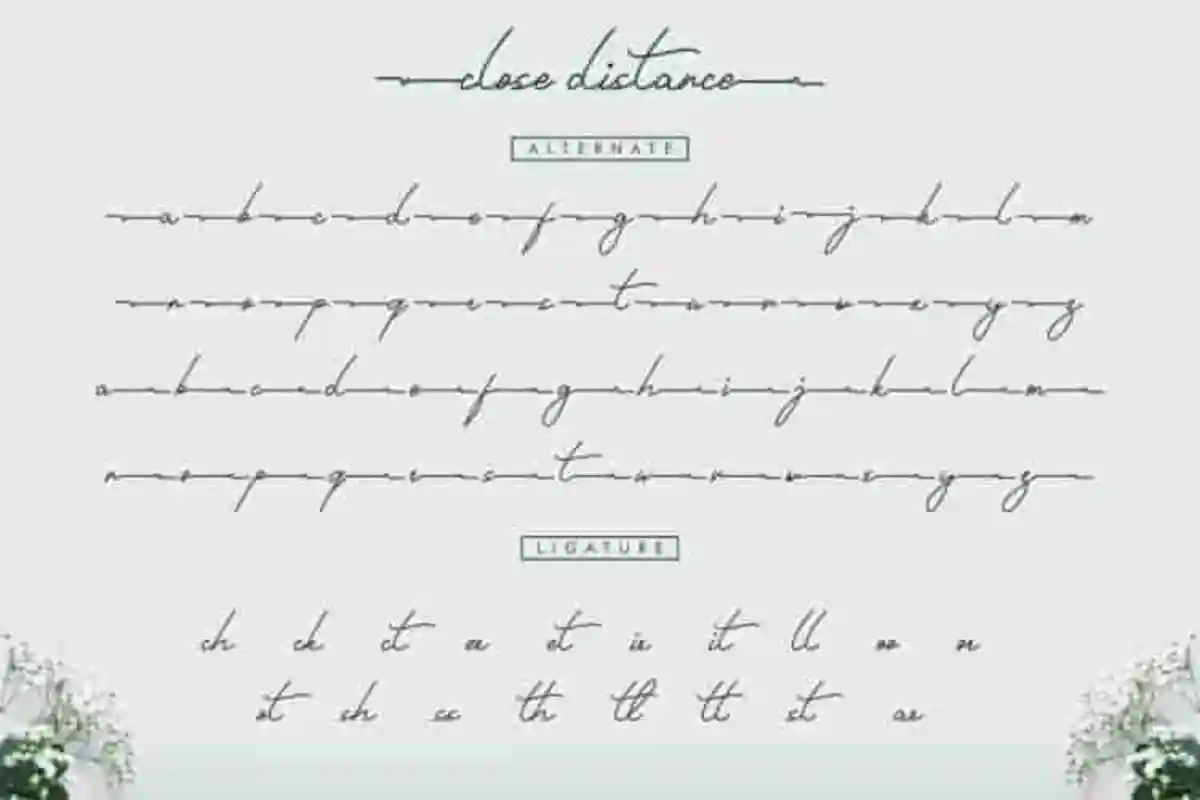 close distance
ALTERNATE
a b c d e f g h i j k l m
n o p q r s t u v w x y z
a b c d e f g h i j k l m
n o p q r s t u v w x y z
LIGATURE
ch ck ct et it ll
ot sh ss th tt st